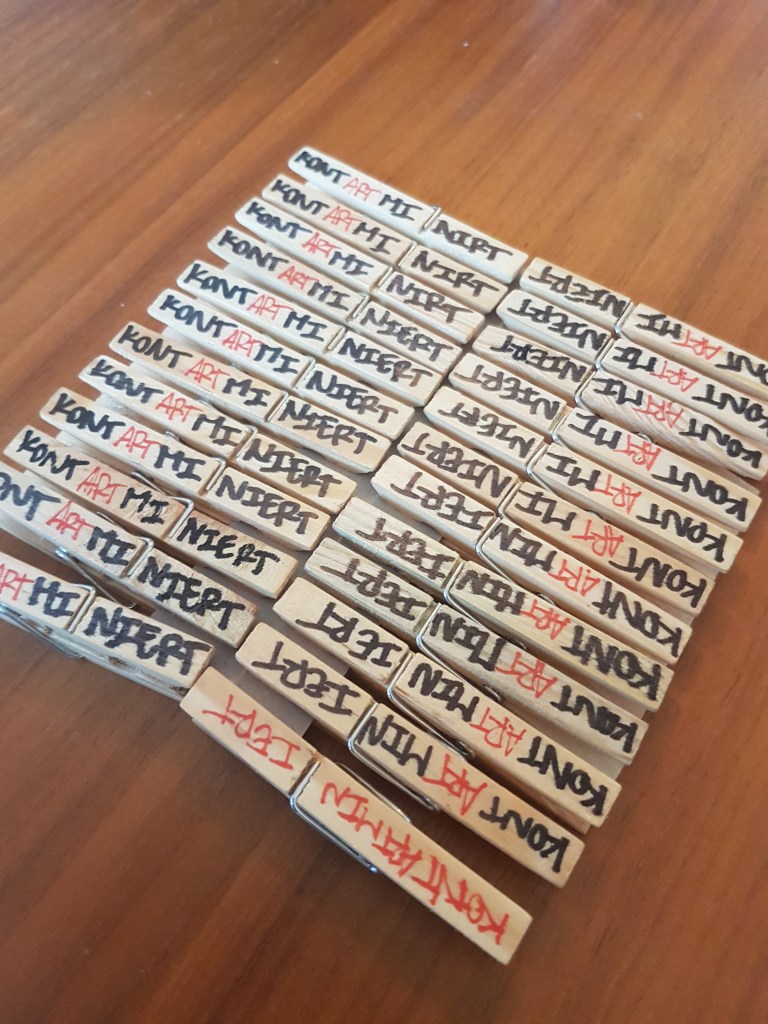 KONT ART MI NIRT
KONT ART MI NIRT
KONT ART MI NIRT
KONT ART MI NIERT
KONT ART MI NIERT
KONT ART MI NIERT
KONT ART MI NIERT
KONT ART MI NIERT
KONT ART MI NIERT
KONT ART MI NIERT
ONT ART MI NIERT
ART MI NIERT
ONT ART MI NIERT
KONT ART MI NIERT
KONT ART MI NIERT
KONT ART MI NIERT
KONT ART MI NIERT
KONT ART MI NIERT
KONT ART MIN IERT
KONT ART MIN IERT
KONT ART MIN IERT
KONT ART MIN IERT
KONT ART MIN IERT
KONT ART MIN IERT